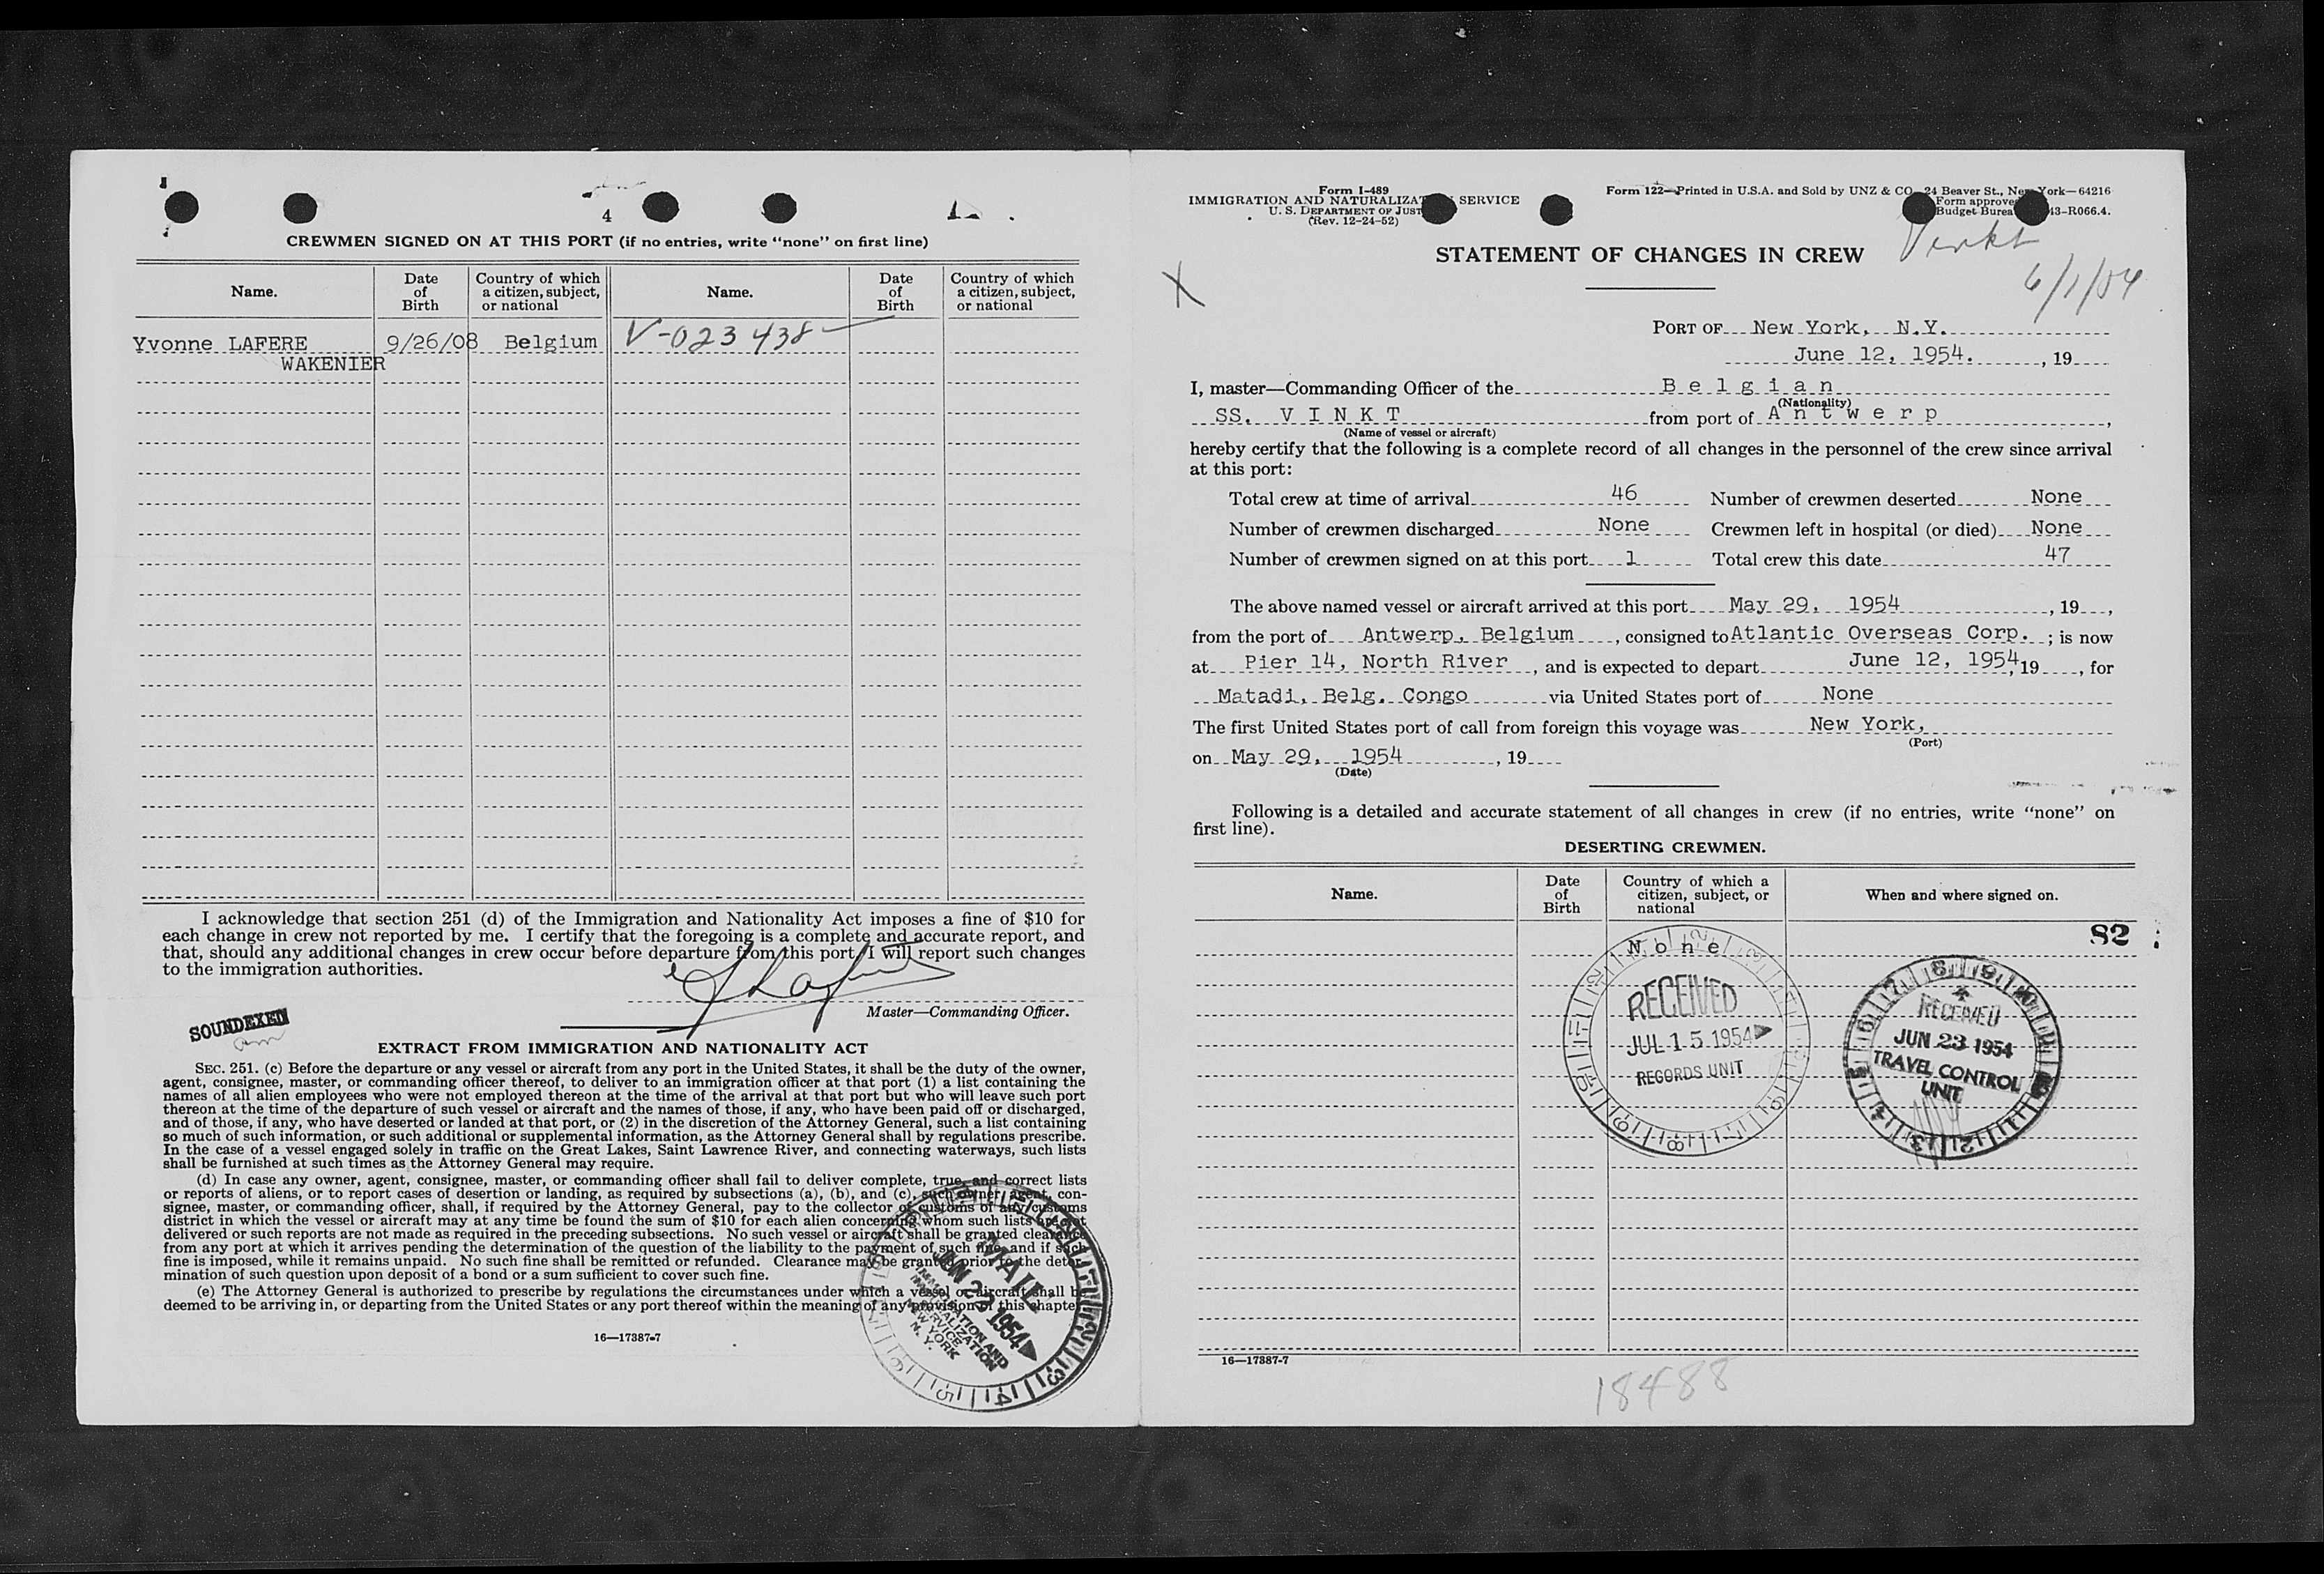 4
CREWMEN SIGNED ON AT THIS PORT (if no entries, write “none” on first line)
Name.
Date of Birth
Country of which a citizen, subject, or national
Name.
Date of Birth
Country of which a citizen, subject, or national
Yvonne LAFERE 9/26/08 Belgium V-023438
WAKENIER
I acknowledge that section 251 (d) of the Immigration and Nationality Act imposes a fine of $10 for
each change in crew not reported by me. I certify that the foregoing is a complete and accurate report, and
that, should any additional changes in crew occur before departure from this port, I will report such changes
to the immigration authorities.
Master—Commanding Officer.
SOUNDEXED
EXTRACT FROM IMMIGRATION AND NATIONALITY ACT
SEC. 251. (c) Before the departure or any vessel or aircraft from any port in the United States, it shall be the duty of the owner,
agent, consignee, master, or commanding officer thereof, to deliver to an immigration officer at that port (1) a list containing the
names of all alien employees who were not employed thereon at the time of the arrival at that port but who will leave such port
thereon at the time of the departure of such vessel or aircraft and the names of those, if any, who have been paid off or discharged,
and of those, if any, who have deserted or landed at that port, or (2) in the discretion of the Attorney General, such a list containing
so much of such information, or such additional or supplemental information, as the Attorney General shall by regulations prescribe.
In the case of a vessel engaged solely in traffic on the Great Lakes, Saint Lawrence River, and connecting waterways, such lists
shall be furnished at such times as the Attorney General may require.
(d) In case any owner, agent, consignee, master, or commanding officer shall fail to deliver complete, true, and correct lists
or reports of aliens, or to report cases of desertion or landing, as required by subsections (a), (b), and (c), such owner, agent, con-
signee, master, or commanding officer, shall, if required by the Attorney General, pay to the collector of customs of any customs
district in which the vessel or aircraft may at any time be found the sum of $10 for each alien concerning whom such lists are not
delivered or such reports are not made as required in the preceding subsections. No such vessel or aircraft shall be granted clearance
from any port at which it arrives pending the determination of the question of the liability to the payment of such fine, and if such
fine is imposed, while it remains unpaid. No such fine shall be remitted or refunded. Clearance may be granted prior to the deter-
mination of such question upon deposit of a bond or a sum sufficient to cover such fine.
(e) The Attorney General is authorized to prescribe by regulations the circumstances under which a vessel or aircraft shall be
deemed to be arriving in, or departing from the United States or any port thereof within the meaning of any provision of this chapter
16—17387-7
MAIL
JUN 22 1954
IMMIGRATION AND
NATURALIZATION
SERVICE
NEW YORK
N. Y.
Form I-489
IMMIGRATION AND NATURALIZATION SERVICE
U. S. DEPARTMENT OF JUST
(Rev. 12-24-52)
Form 122—Printed in U.S.A. and Sold by UNZ & CO., 24 Beaver St., New York—64216
Form approved
Budget Bureau 43-R066.4.
STATEMENT OF CHANGES IN CREW
Vinkt
6/1/54
X
PORT OF New York, N.Y.
June 12, 1954. , 19
I, master—Commanding Officer of the Belgian
(Nationality)
SS. VINKT from port of Antwerp,
(Name of vessel or aircraft)
hereby certify that the following is a complete record of all changes in the personnel of the crew since arrival
at this port:
Total crew at time of arrival 46 Number of crewmen deserted None
Number of crewmen discharged None Crewmen left in hospital (or died) None
Number of crewmen signed on at this port 1 Total crew this date 47
The above named vessel or aircraft arrived at this port May 29, 1954 , 19 ,
from the port of Antwerp, Belgium , consigned to Atlantic Overseas Corp. ; is now
at Pier 14, North River , and is expected to depart June 12, 1954, 19 , for
Matadi, Belg. Congo via United States port of None
The first United States port of call from foreign this voyage was New York,
(Port)
on May 29, 1954 , 19
(Date)
Following is a detailed and accurate statement of all changes in crew (if no entries, write “none” on
first line).
DESERTING CREWMEN.
Name.
Date of Birth
Country of which a citizen, subject, or national
When and where signed on.
82
None
RECEIVED
JUL 15 1954
RECORDS UNIT
RECEIVED
JUN 23 1954
TRAVEL CONTROL
UNIT
16—17387-7
18488